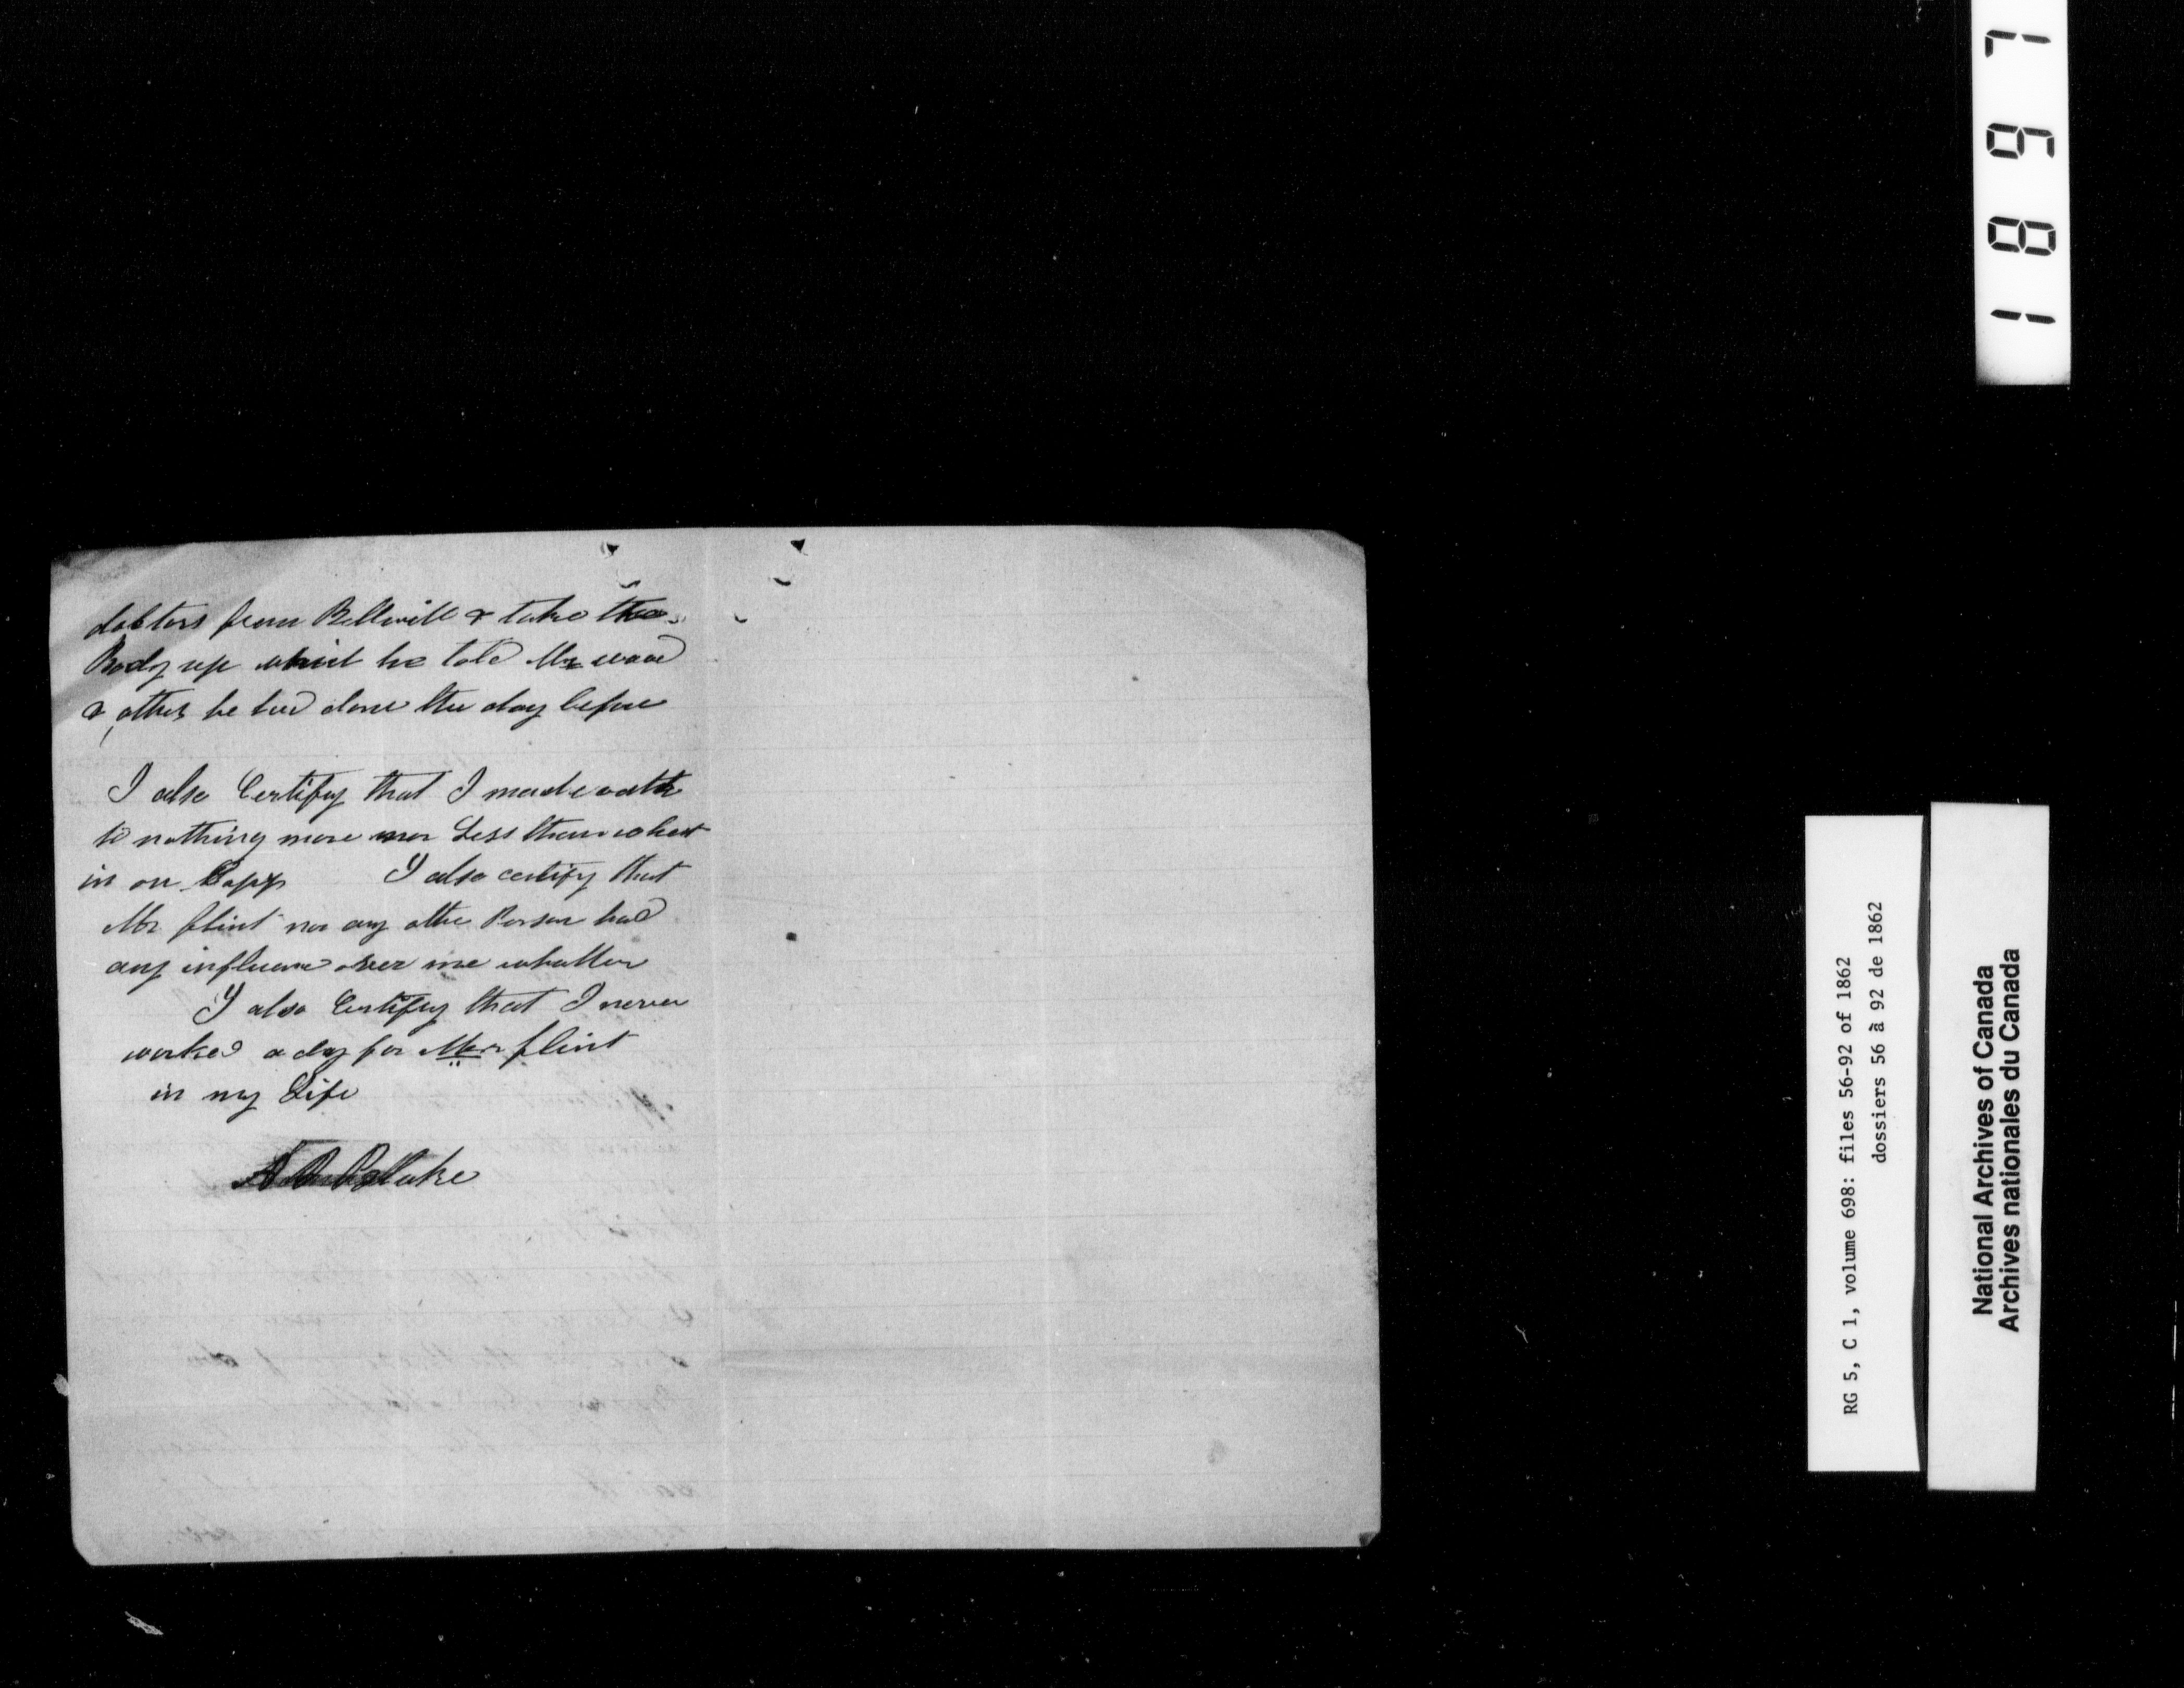 doctors from Bellvill & take the
Body up which he told Mr wood
& others he had done the day before
I also Certify that I made oath
to nothing more nor Less than what
is on Papp I also certify that
Mr flint nor any other Person had
any influence over me whatter
I also Certify that I never
worked a day for Mr flint
in my Life
Blake
1897
RG 5, C 1, volume 698: files 56-92 of 1862
dossiers 56 à 92 de 1862
National Archives of Canada
Archives nationales du Canada